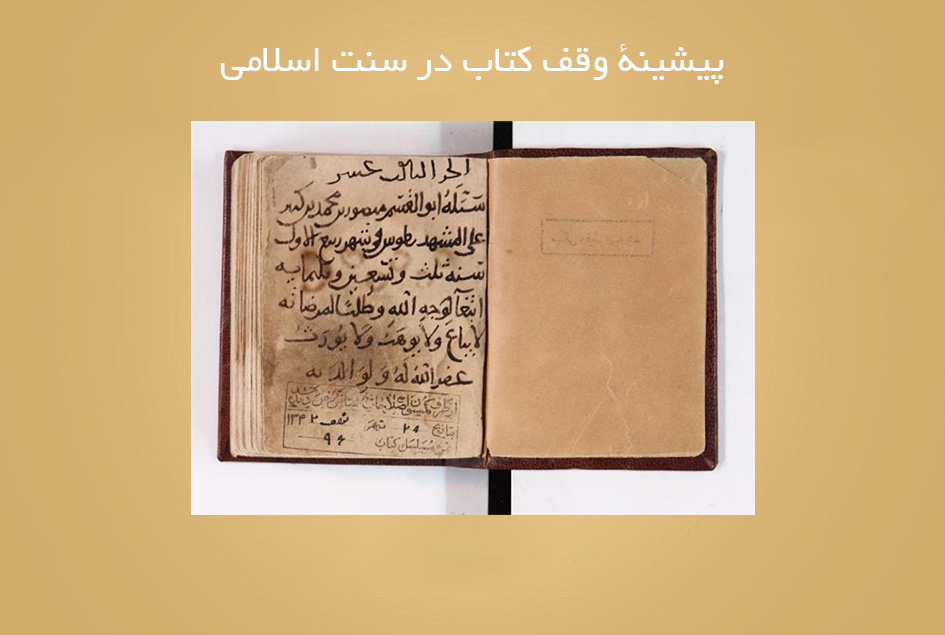 پیشینهٔ وقف کتاب در سنت اسلامی
الجز الثالث عشر
سبله ابو القسم منصور بن محمد بن كثير
على المشهد بطوس في شهر ربيع الاول
سنة ثلث وتسعين وثلثمايه
ابتغآ لوجه الله وطلبا لمرضاته
لا يباع ولا يوهب ولا يورث
غفر الله له ولوالديه
از طرف کمیسیون اصلاحات
بتاریخ ۲۴ شهر ۱۳۴۲
۹۶
مسلسل کتاب